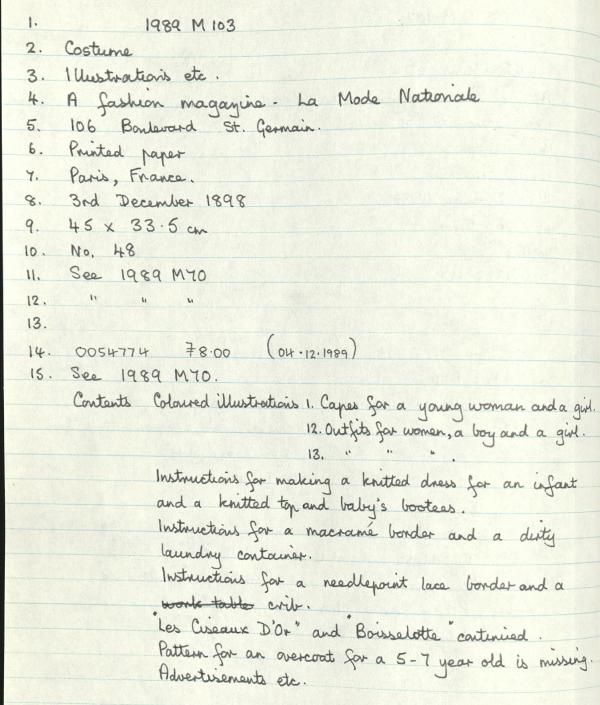 1. 1989 M 103
2. Costume
3. Illustrations etc.
4. A fashion magazine. La Mode Nationale
5. 106 Boulevard St. Germain.
6. Printed paper
7. Paris, France.
8. 3rd December 1898
9. 45 x 33.5 cm
10. No. 48
11. See 1989 M70
12. " " "
13.
14. 0054774 8.00 (04.12.1989)
15. See 1989 M70.
Contents Coloured illustrations 1. Capes for a young woman and a girl.
12. Outfits for women, a boy and a girl.
13. " " " .
Instructions for making a knitted dress for an infant
and a knitted top and baby's bootees.
Instructions for a macramé border and a dirty
laundry container.
Instructions for a needlepoint lace border and a
work table crib.
"Les Ciseaux D'Or" and "Boisselotte" continued.
Pattern for an overcoat for a 5-7 year old is missing.
Advertisements etc.